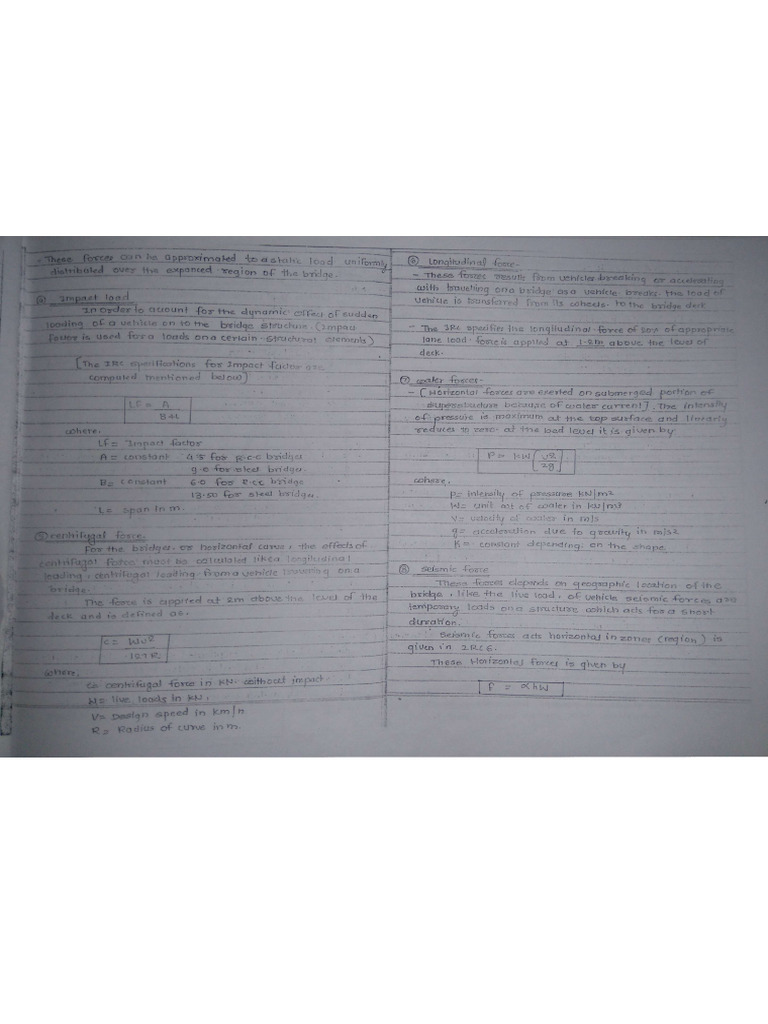 - These forces can be approximated to a static load uniformly
distributed over the expanced region of the bridge.
④ Impact load
In order to acount for the dynamic effect of sudden
loading of a vehicle on to the bridge structure. (Impact
factor is used for a loads on a certain structural elements)
[The IRC specifications for Impact factor are
computed mentioned below]
If = A
B+L
where,
If = Impact factor
A = constant 4.5 for R.C.C bridge
9.0 for steel bridge.
B = constant 6.0 for R.CC bridge
13.50 for steel bridge.
L = span in m.
⑤ centrifugal force.
For the bridges or horizontal curve, the effects of
centrifugal force must be calculated like a longitudinal
loading, centrifugal loading from a vehicle traveling on a
bridge.
The force is applied at 2m above the level of the
deck and is defined as.
C = WV2
127R
where,
C= centrifugal force in KN. without impact.
W= live loads in KN.
V= Design speed in km/h
R= Radius of curve in m.
⑥ Longitudinal force-
- These forces results from vehicles breaking or accelerating
with travelling on a bridge as a vehicle breaks. the load of
vehicle is transferred from its wheels. to the bridge deck
- The IRC specifier the longitudinal force of 20% of appropriate
lane load. force is applied at 1.2m above the level of
deck.
⑦ water forces-
- [Horizontal forces are exerted on submerged portion of
superstructure because of water current]. The intensity
of pressure is maximum at the top surface and linearly
reduces to zero. at the bed level it is given by
P = KW [V2/2g]
where,
P= intensity of pressure KN/m2
W= unit wt of water in kN/m3
V= velocity of water in m/s
g= acceleration due to gravity in m/s2
K= constant depending on the shape
⑧ seismic force
These forces depends on geographic location of the
bridge, like the live load, of vehicle seismic forces are
temporary loads on a structure which acts for a short
duration.
seismic force acts horizontal in zones (region) is
given in IRC6.
These Horizontal forces is given by
F = αhW